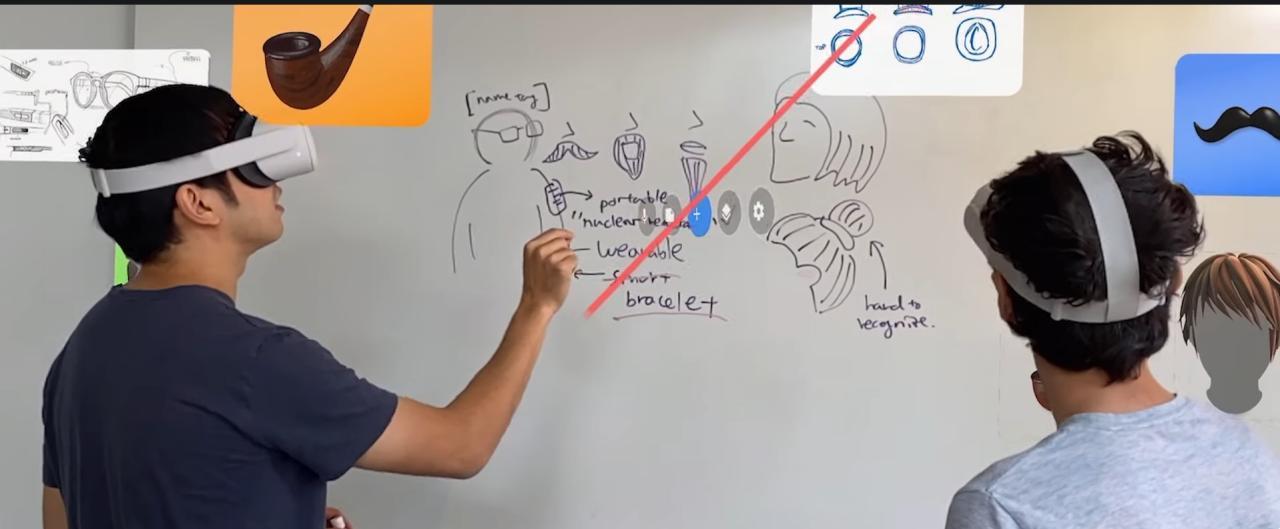 [name tag]
portable
"nuclear
wearable
smart
bracelet
hard to
recognize.
TOP